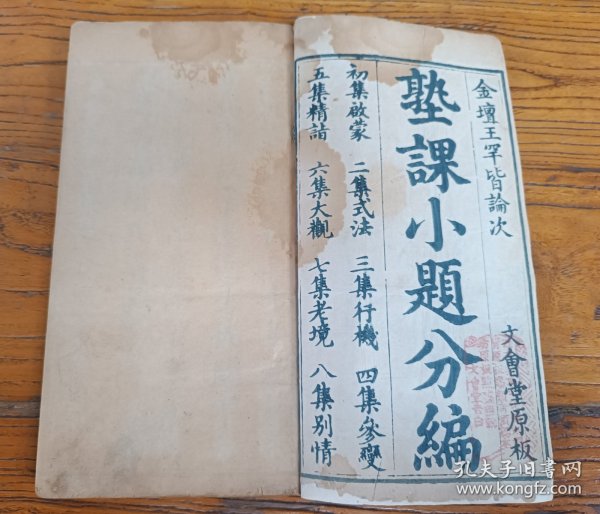 金壇王罕皆論次
塾課小題分編
文會堂原板
初集啟蒙 二集式法 三集行機 四集參變
五集精詣 六集大觀 七集老境 八集別情
孔夫子旧书网
www.kongfz.com